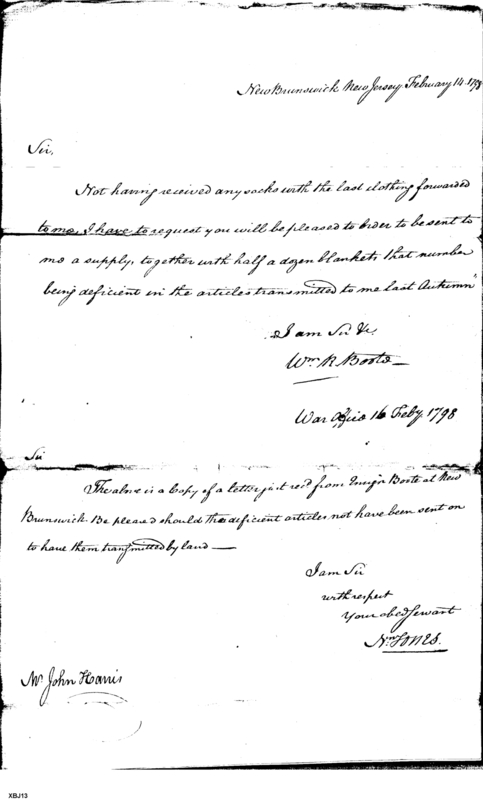 New Brunswick New Jersey February 14. 1798
Sir,
Not having received any socks with the last clothing forwarded
to me, I have to request you will be pleased to order to be sent to
me a supply, together with half a dozen blankets that number
being deficient in the articles transmitted to me last Autumn"
I am Sir &c.
Wm. R. Boote
War Office 16 Feby. 1798
Sir
The above is a Copy of a letter just recd from Ensign Boote at New
Brunswick. Be pleased should the deficient articles not have been sent on
to have them transmitted by land —
I am Sir
with respect
Your obed Servant
Nn. Jones.
Mr. John Harris
XBJ13